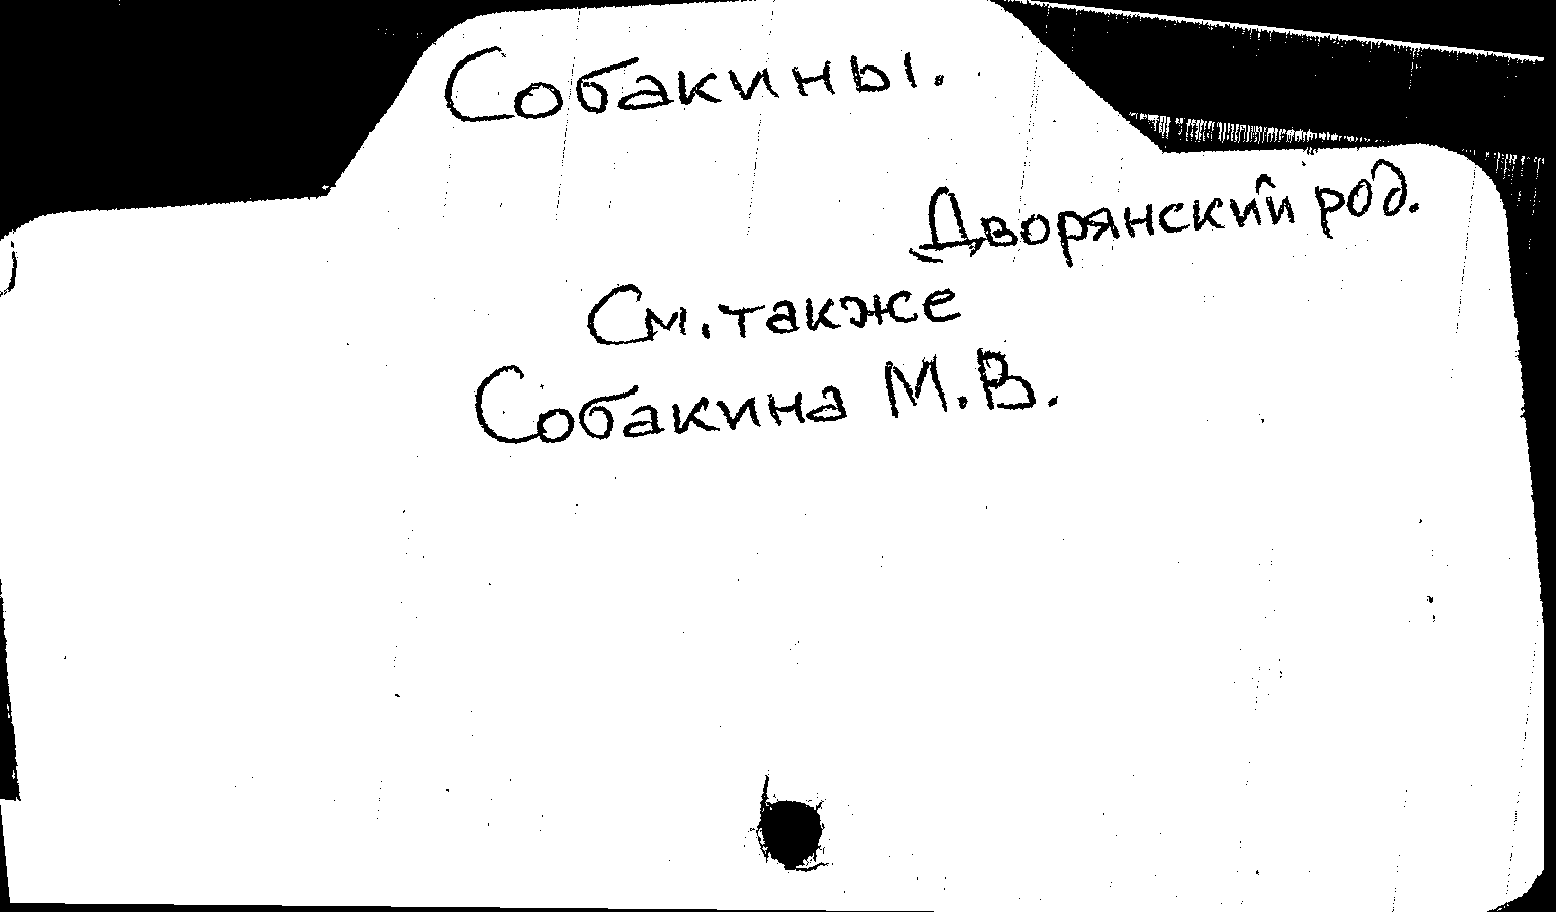 Собакины.
Дворянский род.
См. также
Собакина М.В.